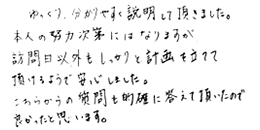 ゆっくり、分かりやすく説明して頂きました。
本人の努力次第にはなりますが
訪問日以外もしっかりと計画を立てて
頂けるようで安心しました。
こちらからの質問も的確に答えて頂いたので
良かったと思います。